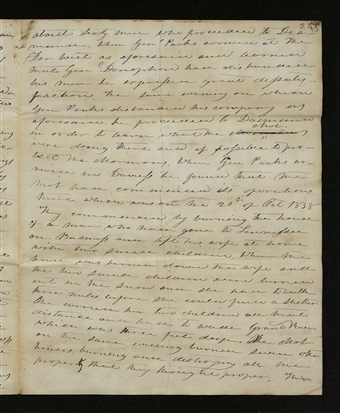 about sixty men who proceeded to Di a
mance, When Genl Parks arrived at the
Far West as aforesaid and learned
that Genl Doniphan had disbanded
his men he expressed great dissatis
faction, The same evening on which
Gen Parks disbanded his company as
aforesaid he proceeded to Daimance
in order to learn what the Mob
were doing there and if possible to pro-
tect the Mormons, When Gen Parks ar-
rived he found that the
Mob have commenced its operations
there which was on the 20th of Oct 1838
They commenced by burning the house
of a man who had gone to Tennessee
on Business and left his wife at home
with two small children, When the
house was burned down the wife and
the two small children were turned
out in the snow and she had to walk
three miles before she could find a shelter
She carried her two children all that
distance and had to wade Grand River
which was three feet deep, The Mob
on the same evening burned seven other
houses burning and destroying all the
property that they thought proper, The